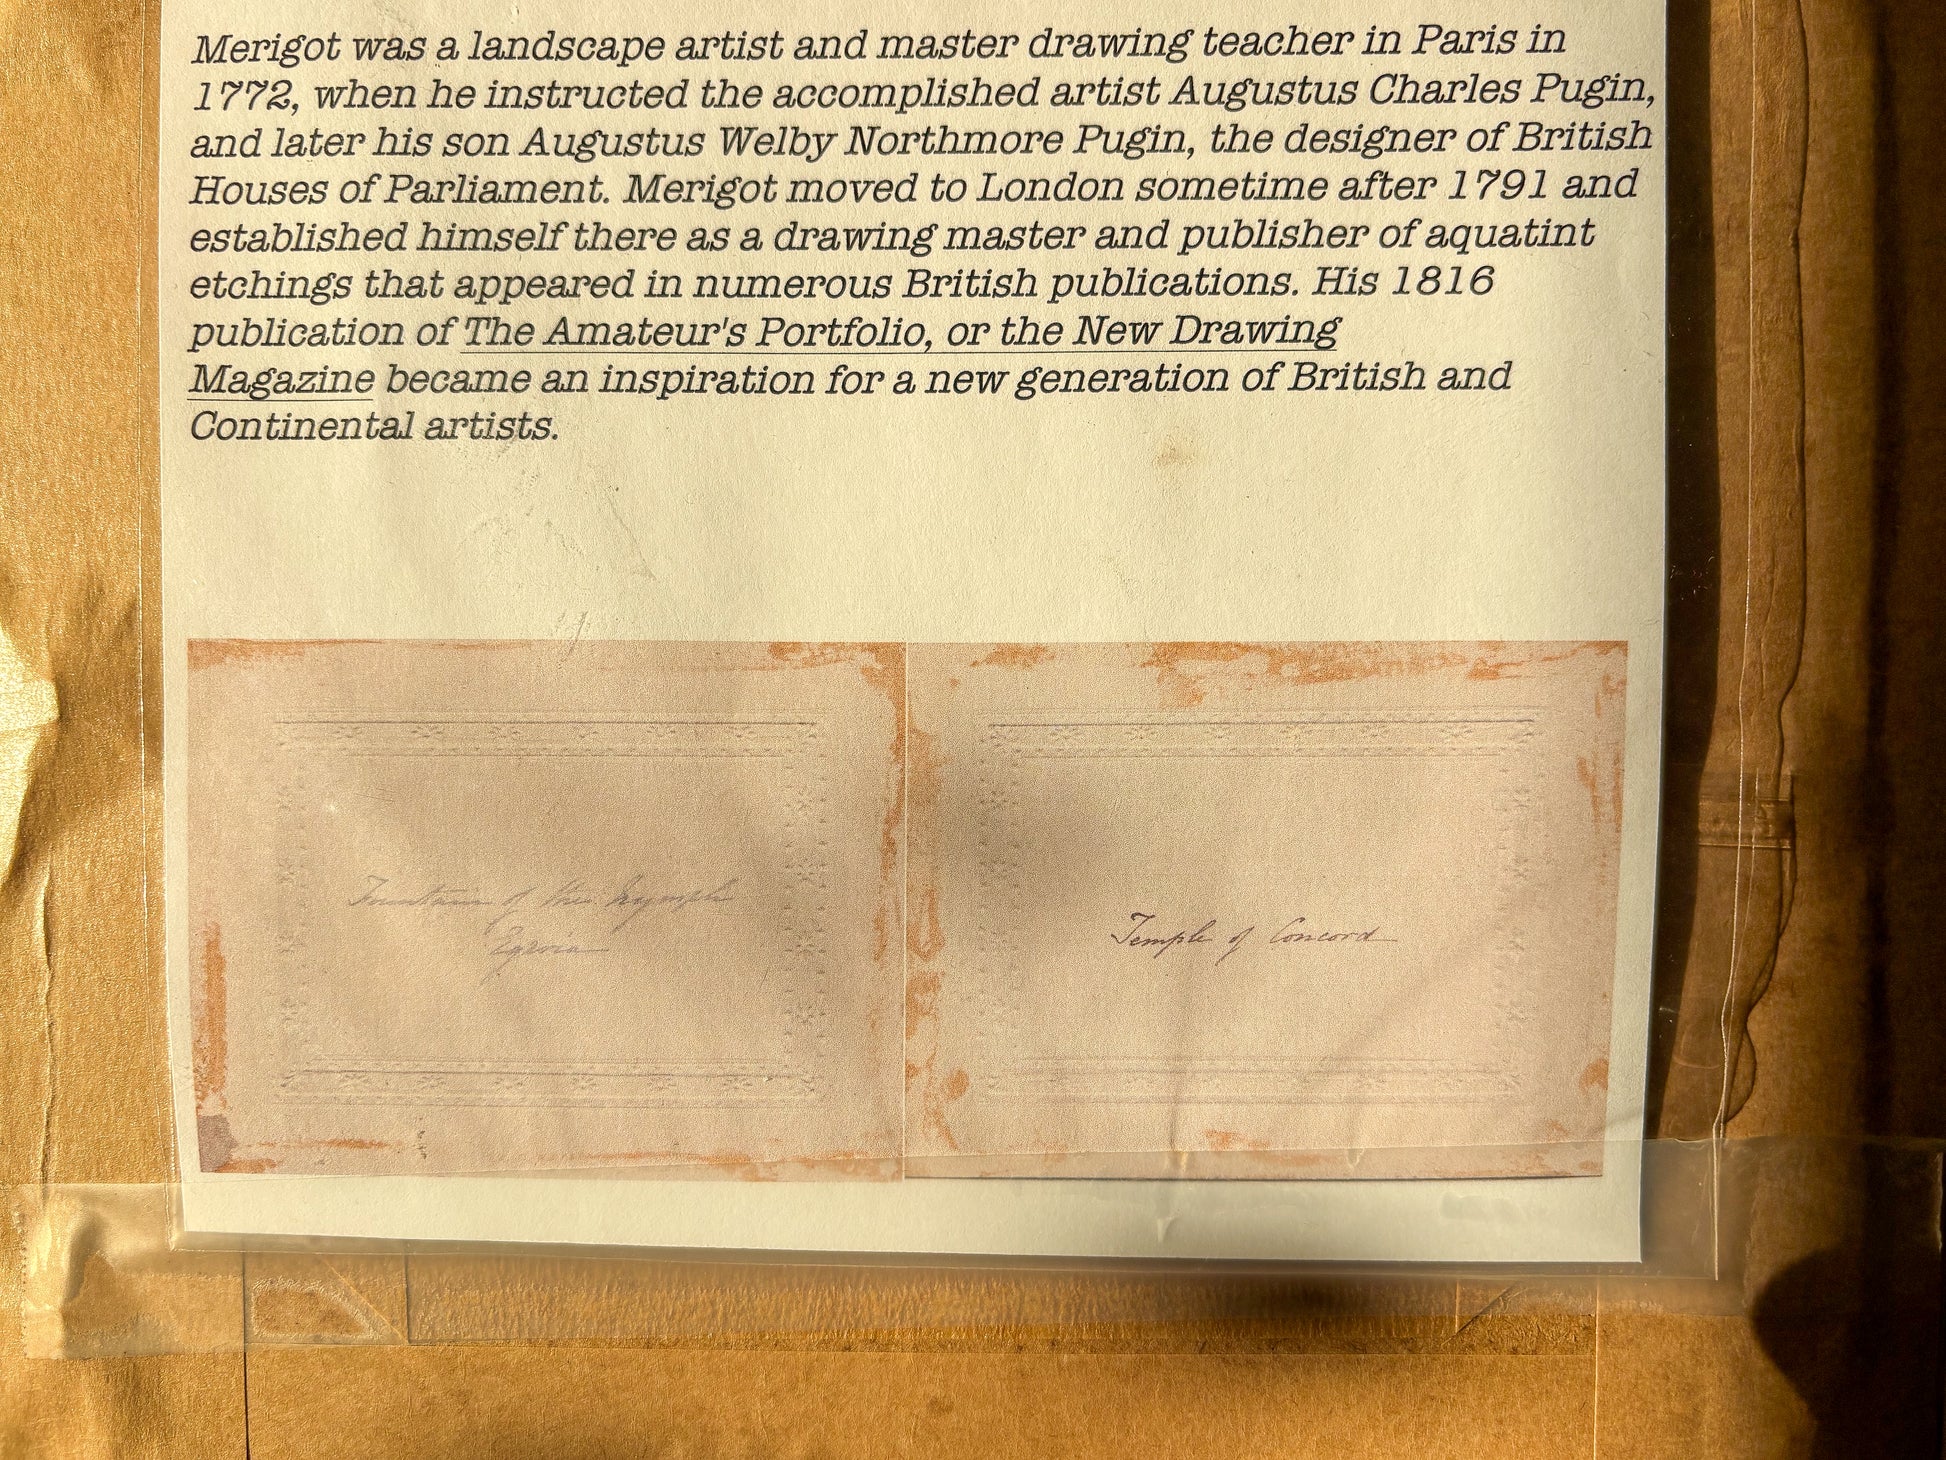 Merigot was a landscape artist and master drawing teacher in Paris in
1772, when he instructed the accomplished artist Augustus Charles Pugin,
and later his son Augustus Welby Northmore Pugin, the designer of British
Houses of Parliament. Merigot moved to London sometime after 1791 and
established himself there as a drawing master and publisher of aquatint
etchings that appeared in numerous British publications. His 1816
publication of The Amateur's Portfolio, or the New Drawing
Magazine became an inspiration for a new generation of British and
Continental artists.
Fountain of the Nymph
Egeria
Temple of Concord